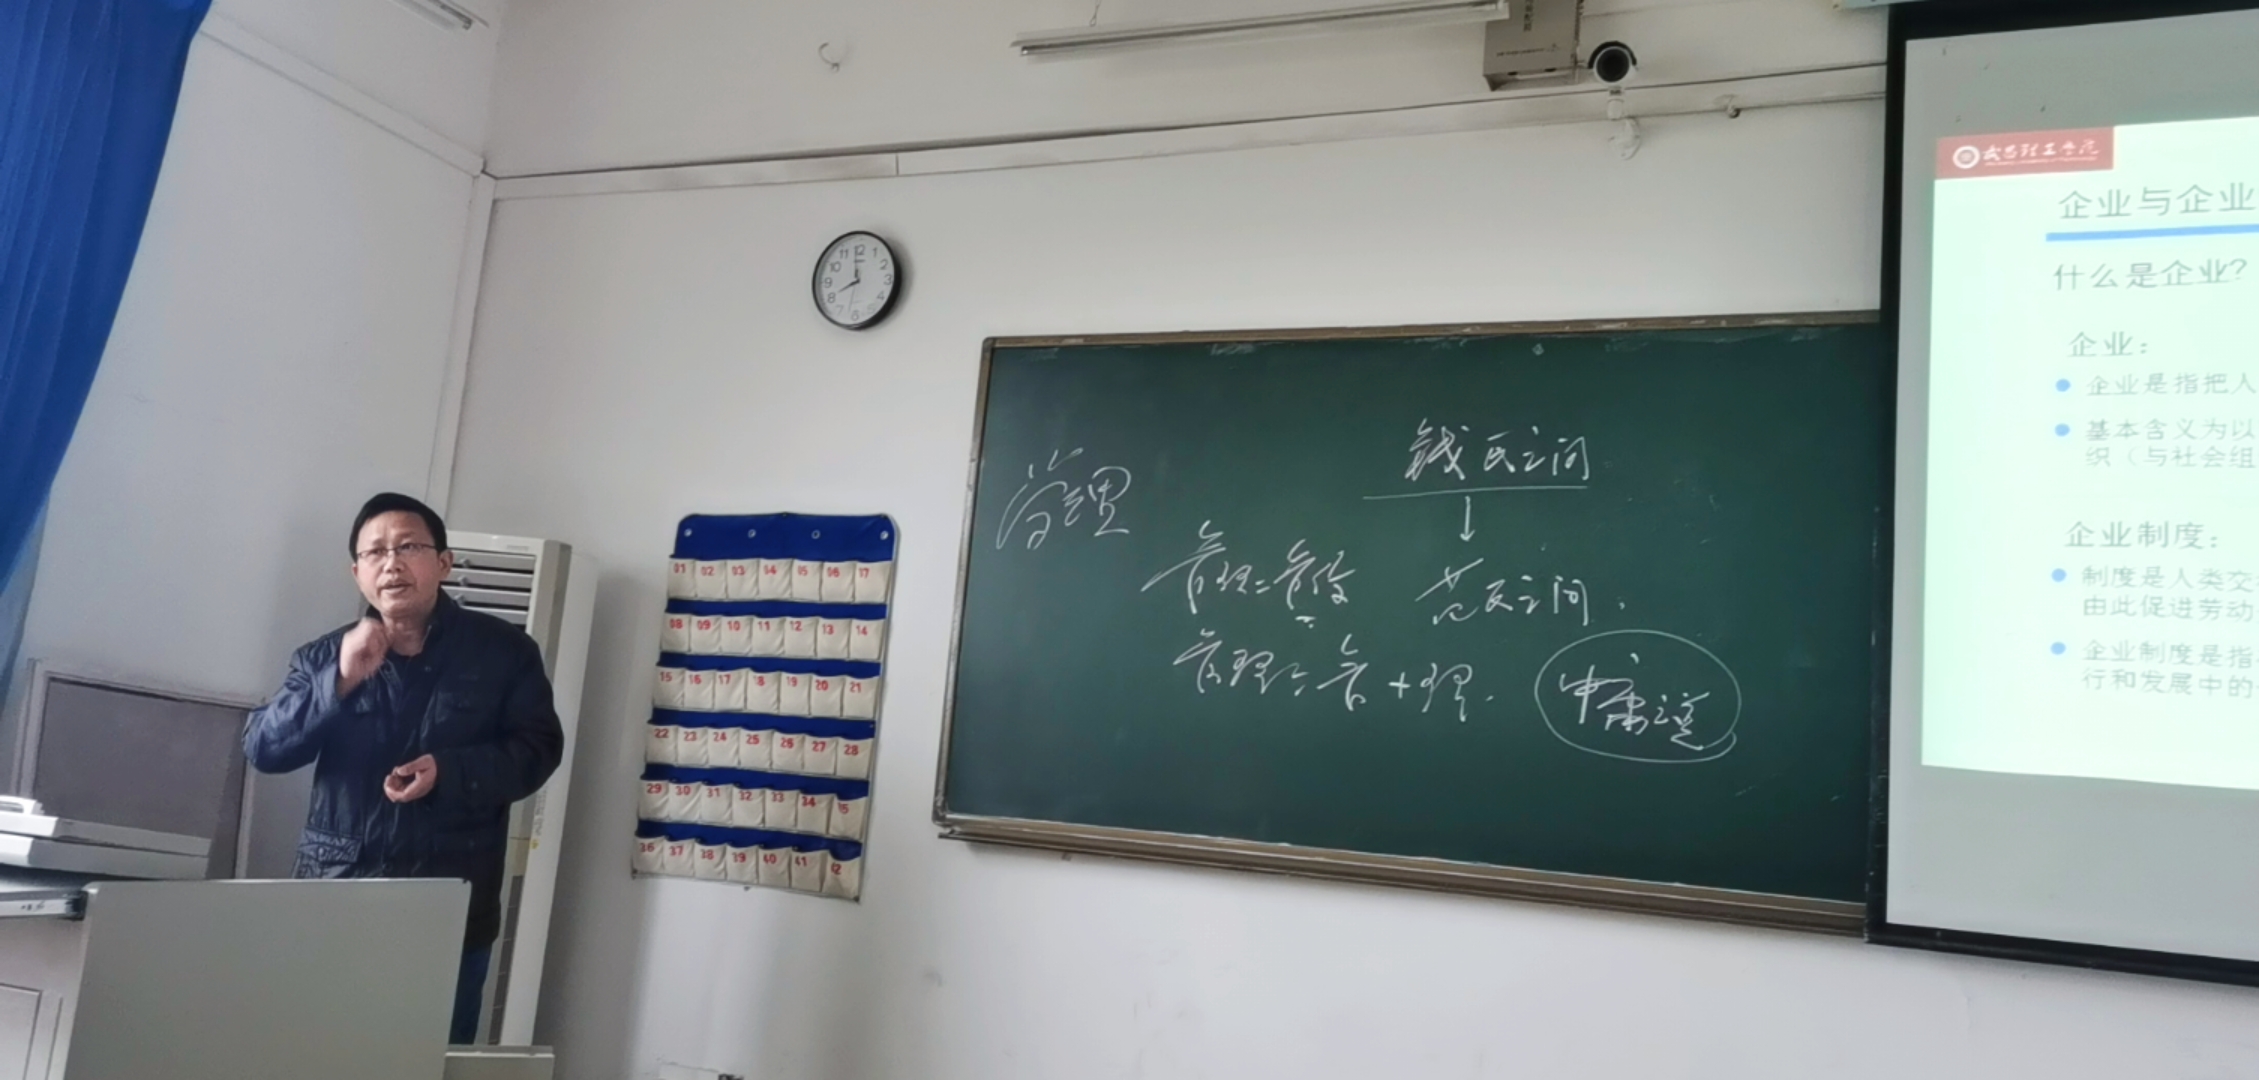 11 12 1
10 2
9 3
8 4
7 6 5
01 02 03 04 05 06 07
08 09 10 11 12 13 14
15 16 17 18 19 20 21
22 23 24 25 26 27 28
29 30 31 32 33 34 35
36 37 38 39 40 41 42
管理
钱氏之问
管理=管
范氏之问.
管理=管+理.
中庸之道
武昌理工学院
企业与企业
什么是企业?
企业:
企业是指把人
基本含义为以
织（与社会组
企业制度:
制度是人类交
由此促进劳动
企业制度是指
行和发展中的